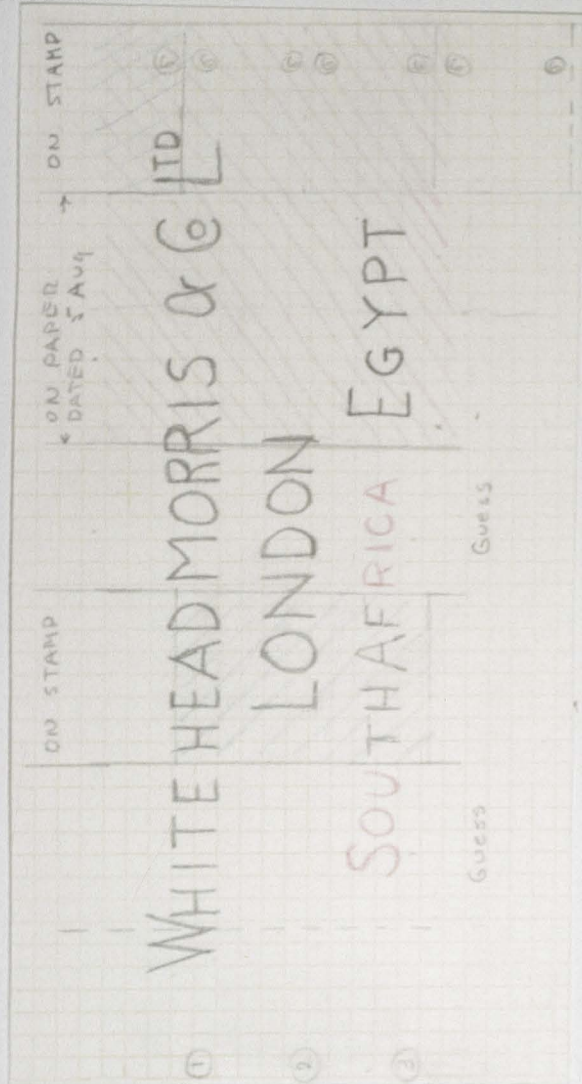 ON STAMP
← ON PAPER →
DATED 5 AUG
ON STAMP
① WHITEHEAD MORRIS & Co LTD
② LONDON
③ SOUTH AFRICA EGYPT
GUESS
GUESS